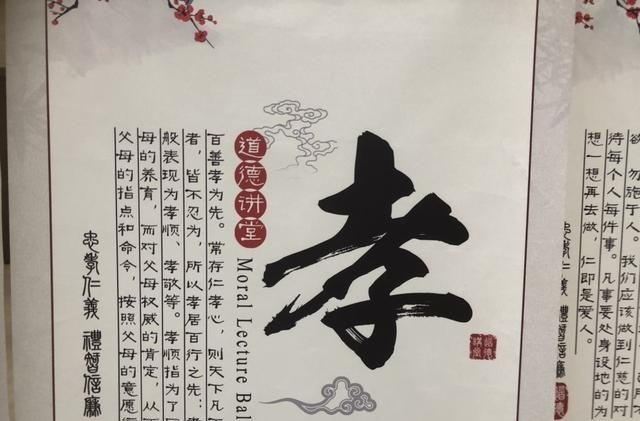 孝
道德讲堂
Moral Lecture Bal
百善孝为先。常存仁孝心，则天下凡
者，皆不忍为，所以孝居百行之先；
般表现为孝顺、孝敬等。孝顺指为了
母的养育，而对父母权威的肯定，从
父母的指点和命令，按照父母的意愿
忠孝仁義 禮智信廉
道德讲堂
欲，勿施于人。我们应该做到仁慈的对
待每个人每件事。凡事要处身设地的为
想一想再去做，仁即是爱人。
忠孝仁義 禮智信廉